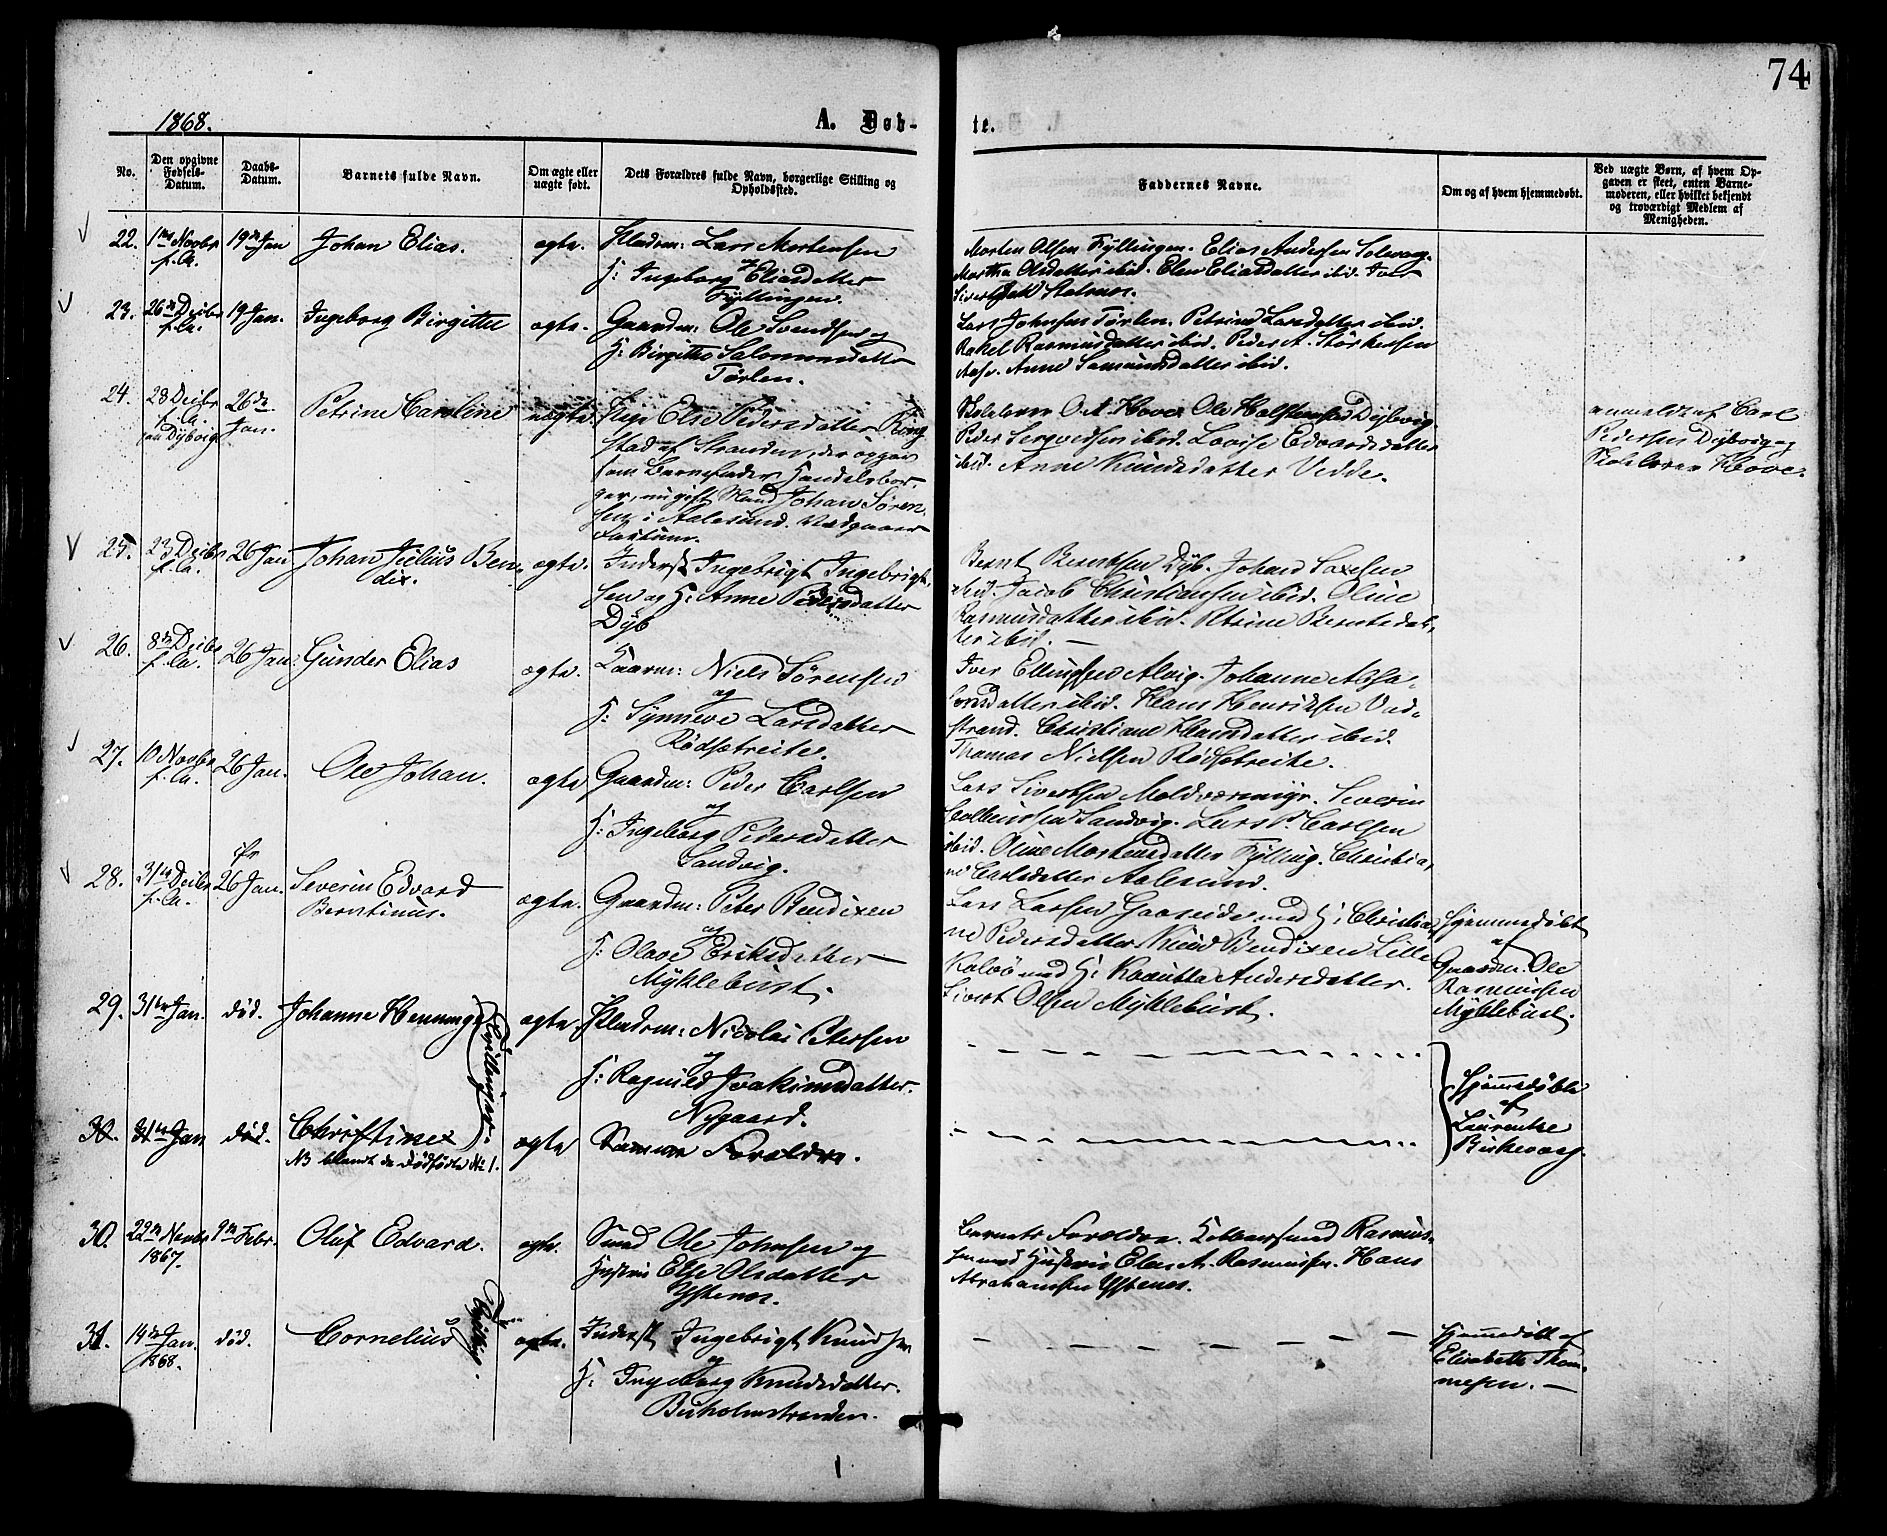 74
1868.
A. Døb-
te.
No.
Den opgivne Fødsels-Datum.
Daabs-Datum.
Barnets fulde Navn.
Om ægte eller uægte født.
Dets Forældres fulde Navn, borgerlige Stilling og Opholdssted.
Faddernes Navne.
Om og af hvem hjemmedøbt.
Ved uægte Børn, af hvem Opgaven er skeet, enten Barnemoderen, eller hvilket bekjendt og troværdigt Medlem af Menigheden.
22. 1ste Novbr f. A. 19de Jan Johan Elias. ægte.
Lars Mortensen
og
H: Ingeborg Eliasdatter
Fyllingen.
Morten Olsen Fyllingen. Elias Andersen Solevag.
Martha Olsdatter ibid. Elen Eliasdatter ibid. Iver
23. 26de Decbr f. A. 19 Jan. Ingeborg Birgitte ægte.
Gaardm: Ole Svendsen og
H: Birgitte Salomonsdatter
Tørlen.
Lars Johnsen Tørlen. Petrine Larsdatter ibid.
Rakel Rasmusdatter ibid. Peder A. Størkersen
Aase. Anne Samundsdatter ibid.
24. 28 Decbr f. A. paa Dybvig 26de Jan. Petrine Caroline uægte.
Pige Else Pedersdatter Ring
stad af Stranden, der opgav
som Barnefader Handelsbor-
ger, ugift Mand Johan Søren-
sen i Aalesund.
Skolelærer O. A. Hove. Ole Holstensen Dybvig.
Peder ibid. Lovise Edvardsdatter
ibid. Anne Knudsdatter Vedde.
anmeldt af Carl
Pedersen Dybvig og
Skolelærer Hove.
25. 23 Decbr f. A. 26 Jan Johan Julius Ben-
dix. ægte.
Inderst Ingebrigt Ingebrigt-
sen og H: Anne Pedersdatter
Dyb
Bernt Berntsen Dyb. Johan
ibid. Jacob Christiansen ibid. Oline
Rasmusdatter ibid. Petrine Berntsdat-
ter ibid. —
26. 8de Decbr f. A. 26 Jan. Gunder Elias ægte.
Niels Sørensen
og
H: Synneve Larsdatter
Rødsetreite.
Iver Ellingsen Alvig. Johanne Absa-
lonsdatter ibid. Hans Henriksen Ved-
strand. Christiane Hansdatter ibid.
Thomas Nielsen Rødsetreite.
27. 10 Novbr f. A. 26 Jan. Ole Johan. ægte
Gaardm: Peder Carlsen
og
H: Ingeborg Pedersdatter
Sandvig.
Lars Sivertsen Moldværsmyr. Severin
Sandvig. Lars P. Carlsen
ibid. Oline Mortensdatter Fylling. Christia-
ne Carlsdatter Aalesund.
28. 31te Decbr f. A. 26 Jan. Severin Edvard
Berntinus. ægte.
Gaardm: Peter Bendixen
og
H: Olave Eriksdatter
Myklebust.
Lars Larsen Gaaseide med H: Christia-
ne Pedersdatter Knud Bendixen Lille
Kalvø med H: Andersdatter.
Sivert Olsen Myklebust.
Hjemmedøbt
af
Gaardm: Ole
Rasmussen
Myklebust.
29. 31te Jan. død. Johanne Henninge ægte
Tvillinger
Nicolai Petersen
og
H: Ragnild Joakimsdatter.
Nygaard.
Hjemmedøbte
af
Laurentse
Birkevaag.
30. 31te Jan død. Christine ægte
NB blandt de Dødfødte No 1.
Samme Forældre.
30. 22de Novbr 1867. 9de Febr. Oluf Edvard. ægte.
Smed Ole Johnsen og
Hustru Else Olsdatter
Barnets Forældre. Rasmus-
sen med Hustru Elen A. Rasmussen. Hans
Abrahamsen
31. 14de Jan. 1868. død. Cornelius ægte.
Tvilling.
Inderst Ingebrigt Knudsen
og
H: Ingeborg Knudsdatter.
Buholmstranden.
Hjemmedøbt af
Elisabeth Thom-
mesen. —